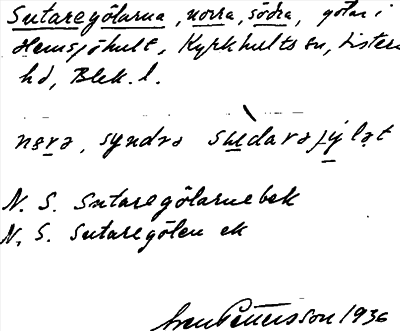 Sutaregölarna, norra, södra, gölar i
Hemsjöhult, Kyrkhults sn, Listers
hd, Blek. l.
nɛrə, syndrə sʉ̀darəjýlət
N. S. Sutaregölarnebek
N. S. Sutaregölen ek
Sven Pettersson 1936